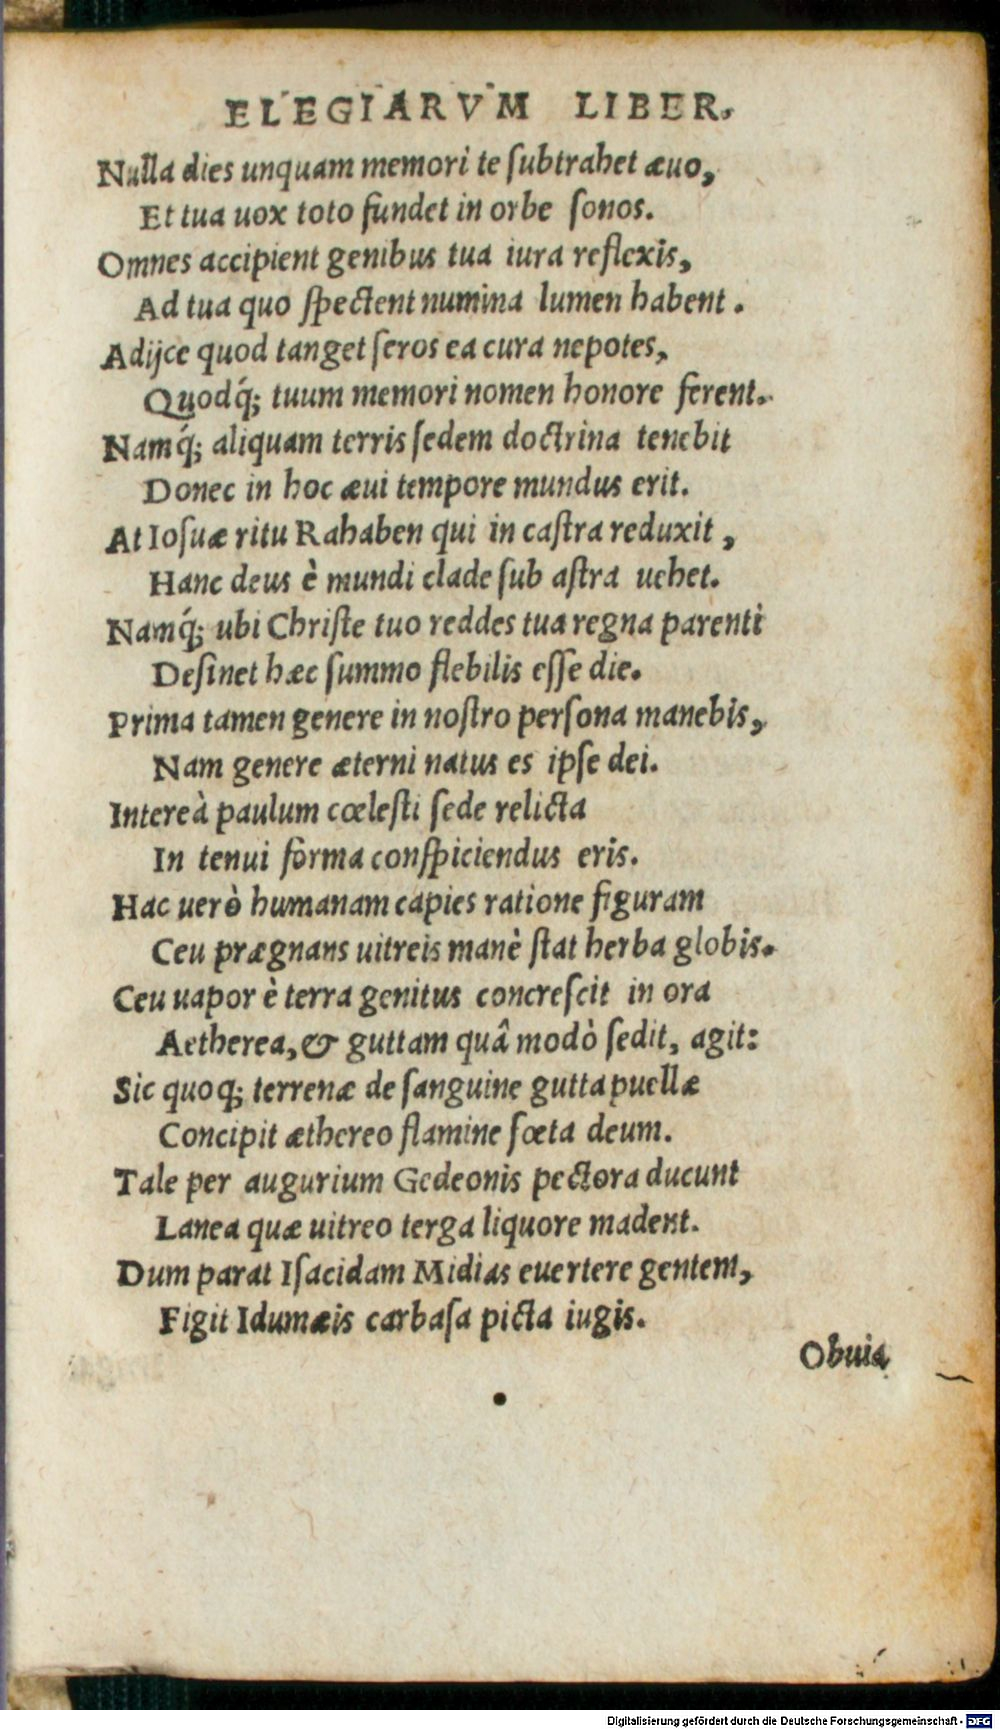 ELEGIARVM LIBER.
Nulla dies unquam memori te ſubtrahet æuo,
Et tua uox toto fundet in orbe ſonos.
Omnes accipient genibus tua iura reflexis,
Ad tua quo ſpectent numina lumen habent.
Adijce quod tanget ſeros ea cura nepotes,
Quodq́; tuum memori nomen honore ferent.
Namq́; aliquam terris ſedem doctrina tenebit
Donec in hoc æui tempore mundus erit.
At Ioſuæ ritu Rahaben qui in caſtra reduxit,
Hanc deus è mundi clade ſub aſtra uehet.
Namq́; ubi Chriſte tuo reddes tua regna parenti
Deſinet hæc ſummo flebilis eſſe die.
Prima tamen genere in noſtro perſona manebis,
Nam genere æterni natus es ipſe dei.
Intereà paulum cœleſti ſede relicta
In tenui forma conſpiciendus eris.
Hac uerò humanam capies ratione figuram
Ceu prægnans uitreis manè ſtat herba globis.
Ceu uapor è terra genitus concreſcit in ora
Aetherea, & guttam quâ modò ſedit, agit:
Sic quoq; terrenæ de ſanguine gutta puellæ
Concipit æthereo flamine fœta deum.
Tale per augurium Gedeonis pectora ducunt
Lanea quæ uitreo terga liquore madent.
Dum parat Iſacidam Midias euertere gentem,
Figit Idumæis carbaſa picta iugis.
Obuia
Digitalisierung gefördert durch die Deutsche Forschungsgemeinschaft - DFG